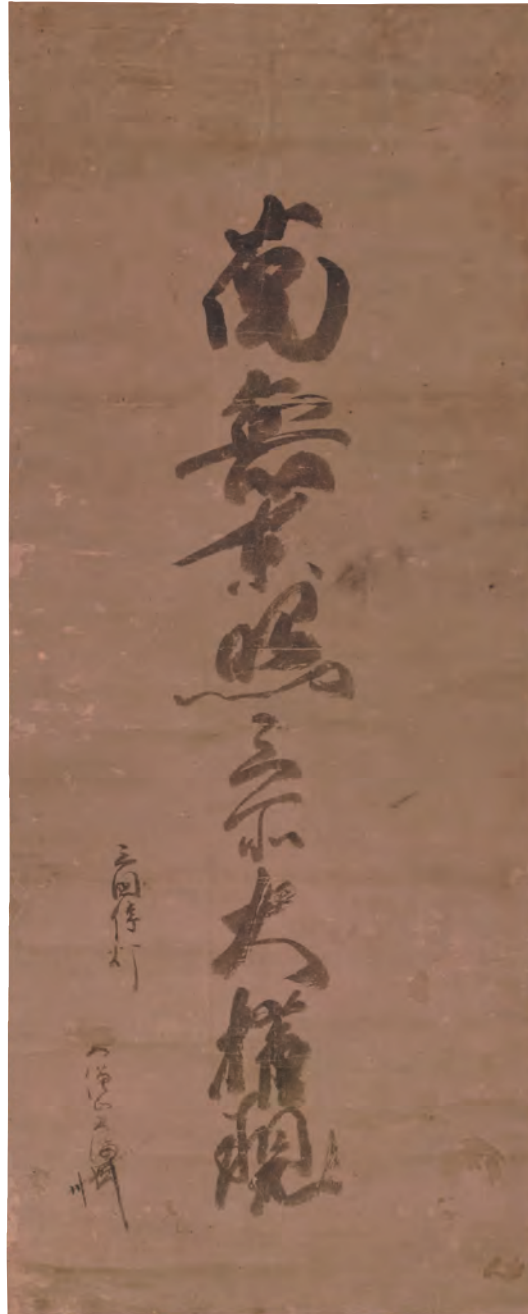 南無東照三所大権現
三国傳灯
大僧正天海